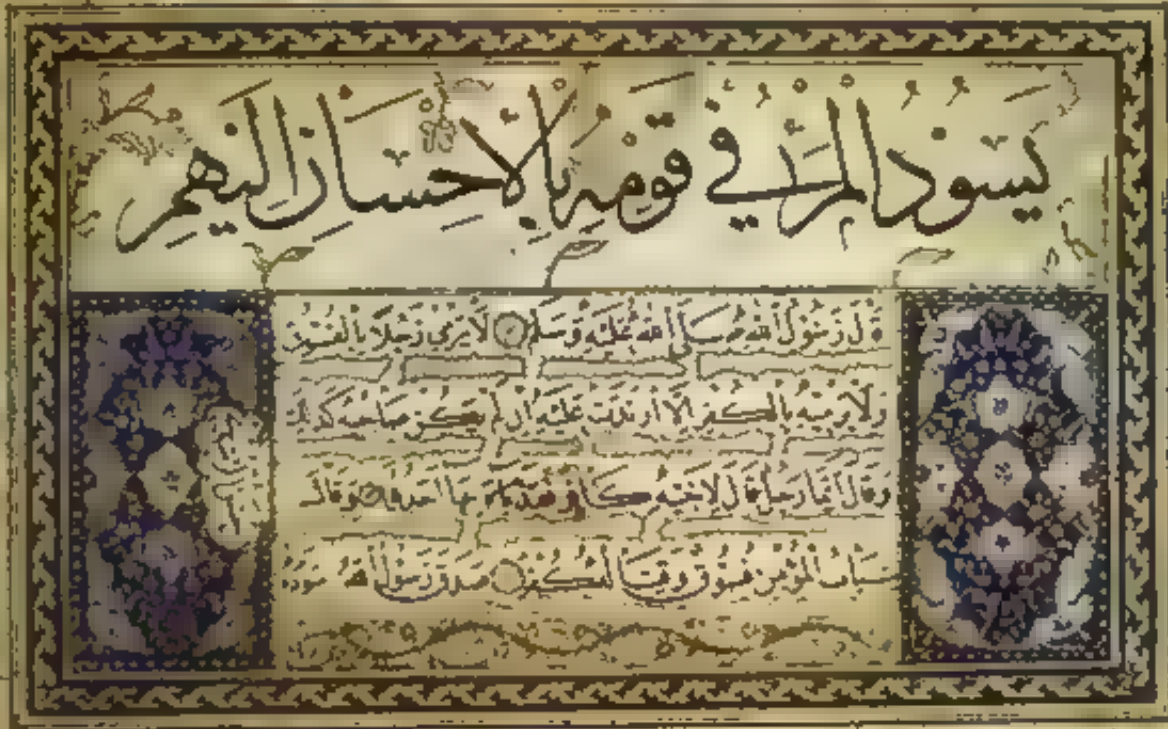 يسود المرء في قومه بالاحسان اليهم
قال رسول الله صلى الله عليه وسلم لا يرمي رجل رجلا بالفسق
ولا يرميه بالكفر الا ارتدت عليه ان لم يكن صاحبه كذلك
وقال ايما رجل قال لاخيه كافر فقد باء بها احدهما وقال
سباب المؤمن فسوق وقتاله كفر صدق رسول الله